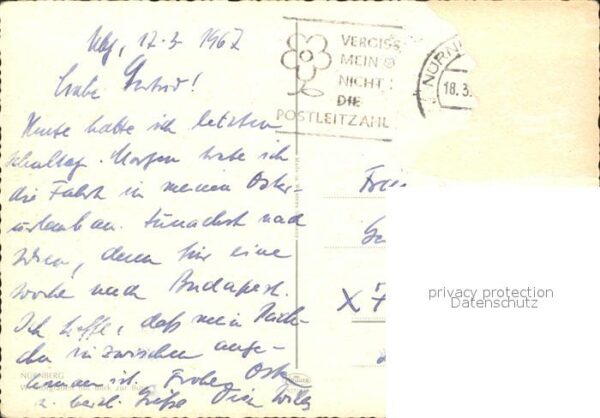 Nbg, 17.3.1967
Liebe
Heute hatte ich letzten
Schultag. Morgen trete ich
die Fahrt in meinen Oster-
urlaub an. Zunächst nach
Wien, dann für eine
Woche nach Budapest.
Ich hoffe, daß mein Päck-
chen inzwischen ange-
kommen ist. Frohe Ostern
u. herzl. Grüße Dein Willy
VERGISS
MEIN
NICHT
DIE
POSTLEITZAHL
NÜRN
18.3.
X 7
NÜRNBERG
privacy protection
Datenschutz